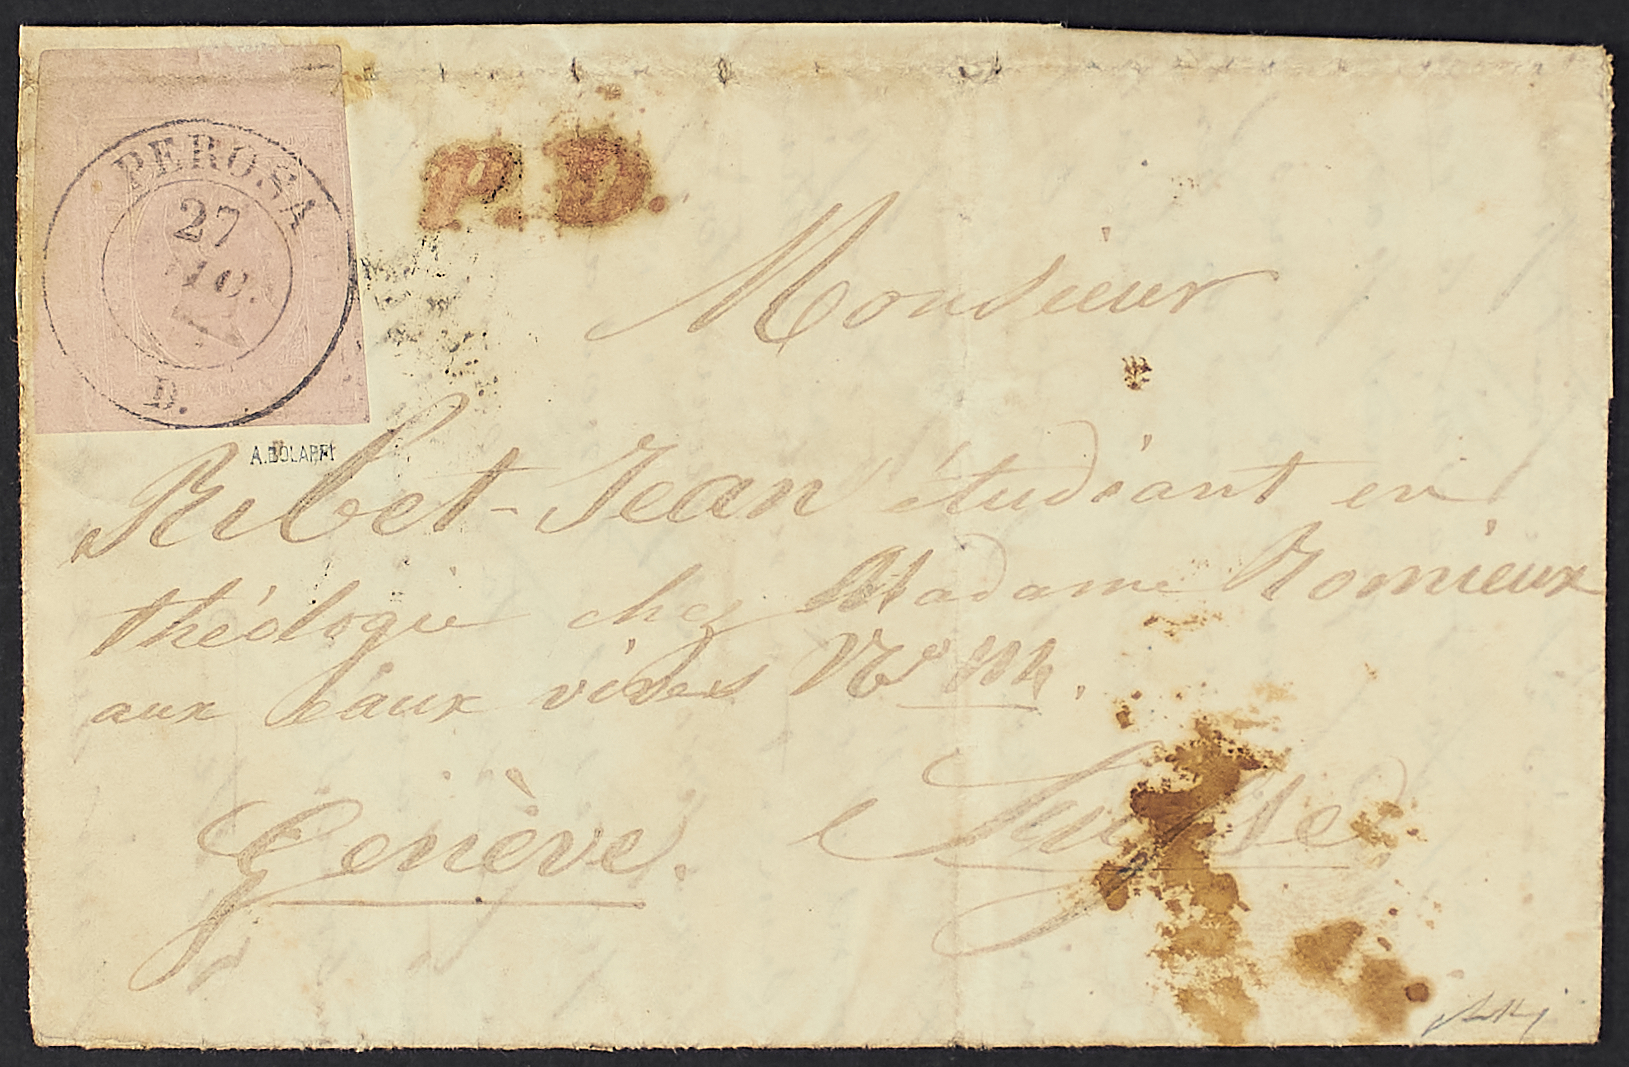 PEROSA
27
D.
P.D.
A. BOLAFFI
Monsieur
Ribet-Jean étudiant en
théologie chez Madame Romieux
aux eaux vives No
Genève. Suisse